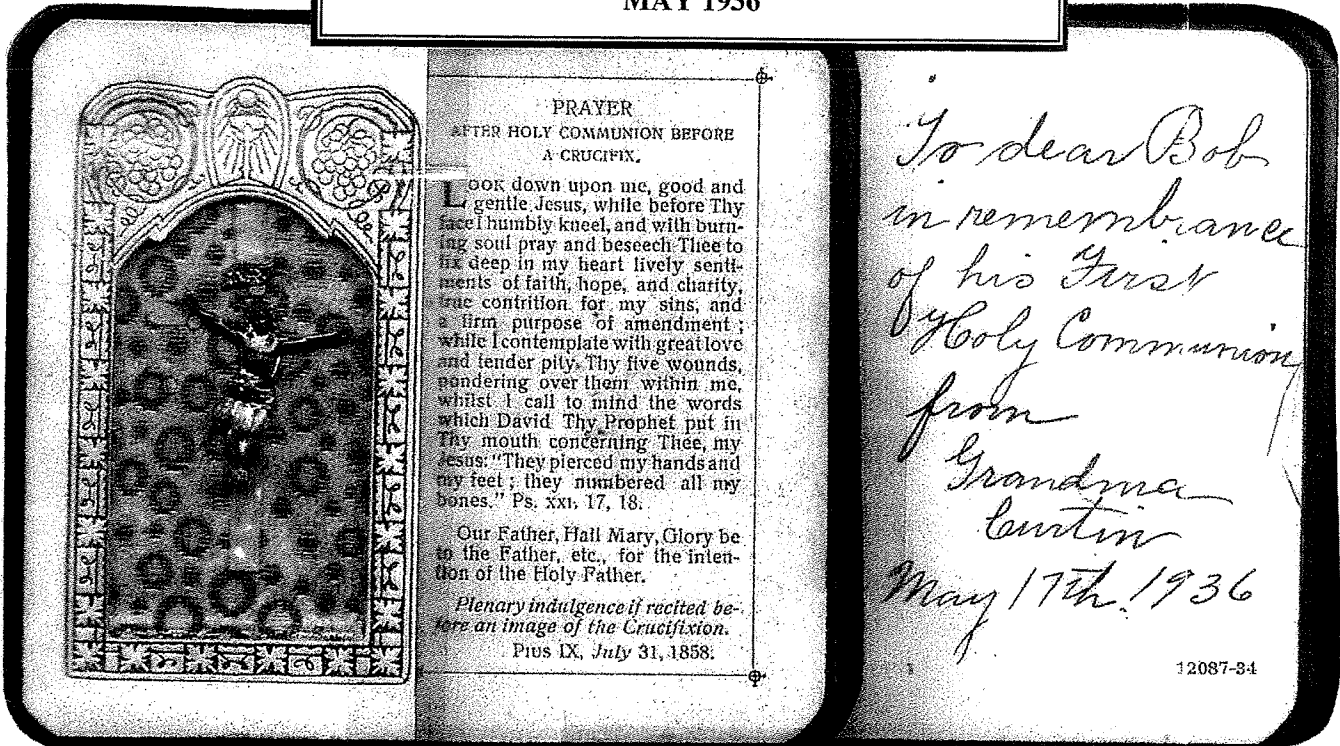 MAY 1936
PRAYER
AFTER HOLY COMMUNION BEFORE
A CRUCIFIX.
Look down upon me, good and
gentle Jesus, while before Thy
face I humbly kneel, and with burn-
ing soul pray and beseech Thee to
fix deep in my heart lively senti-
ments of faith, hope, and charity,
true contrition for my sins, and
a firm purpose of amendment;
while I contemplate with great love
and tender pity Thy five wounds,
pondering over them within me,
whilst I call to mind the words
which David Thy Prophet put in
Thy mouth concerning Thee, my
Jesus: "They pierced my hands and
my feet; they numbered all my
bones." Ps. xxi, 17, 18.
Our Father, Hail Mary, Glory be
to the Father, etc., for the inten-
tion of the Holy Father.
Plenary indulgence if recited be-
fore an image of the Crucifixion.
Pius IX, July 31, 1858.
To dear Bob
in remembrance
of his First
Holy Communion
from
Grandma
Curtin
May 17th. 1936
12087-34